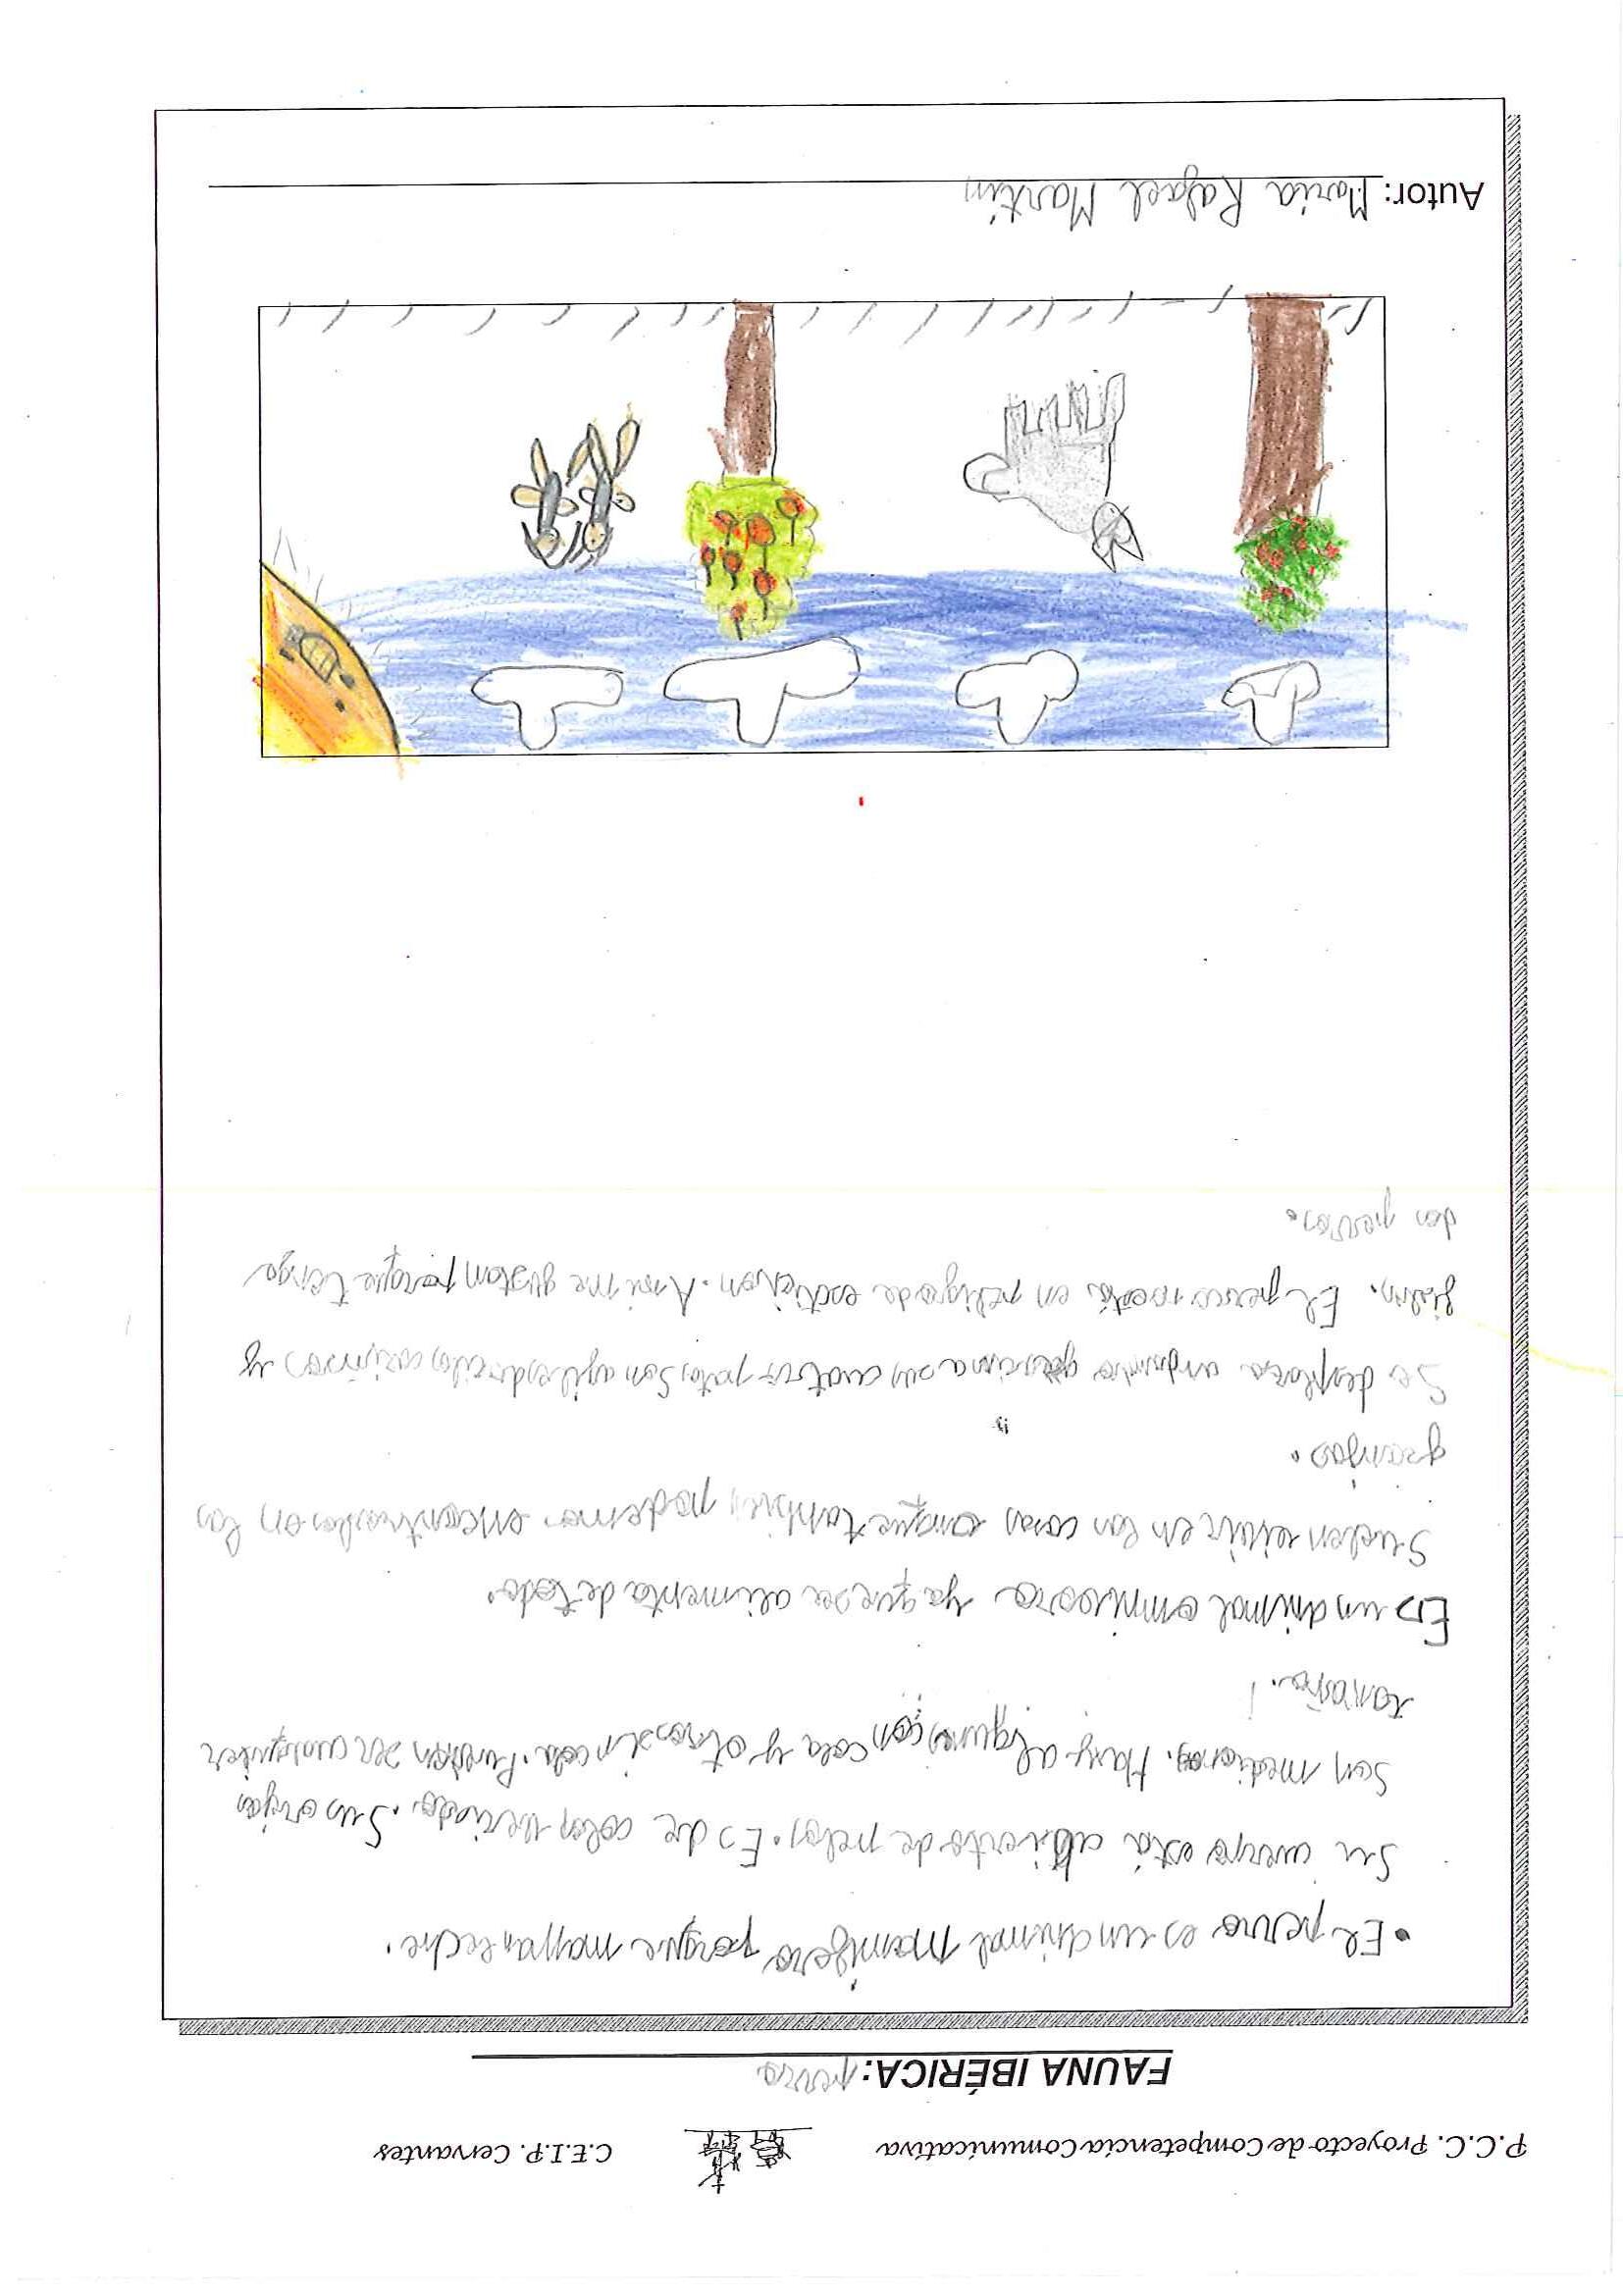 P.C.C. Proyecto de Competencia Comunicativa C.E.I.P. Cervantes
FAUNA IBÉRICA: perro
• El perro es un animal mamífero porque maman leche.
Su cuerpo está cubierto de pelos. Es de color variado. Sus orejas
son medianas. Hay algunos con cola y otros sin cola. Pueden ser cualquier
tamaño.
Es un animal omnivoro ya que se alimenta de todo.
Suelen vivir en las casas aunque también podemos encontrarlos en las
granjas.
Se desplaza andando gracias a sus cuatro patas. Son agiles, deridos, cariñosos y
fieles. El perro no está en peligro de extición. A mi me gustan porque tengo
dos perros.
Autor: Maria Rafael Martín